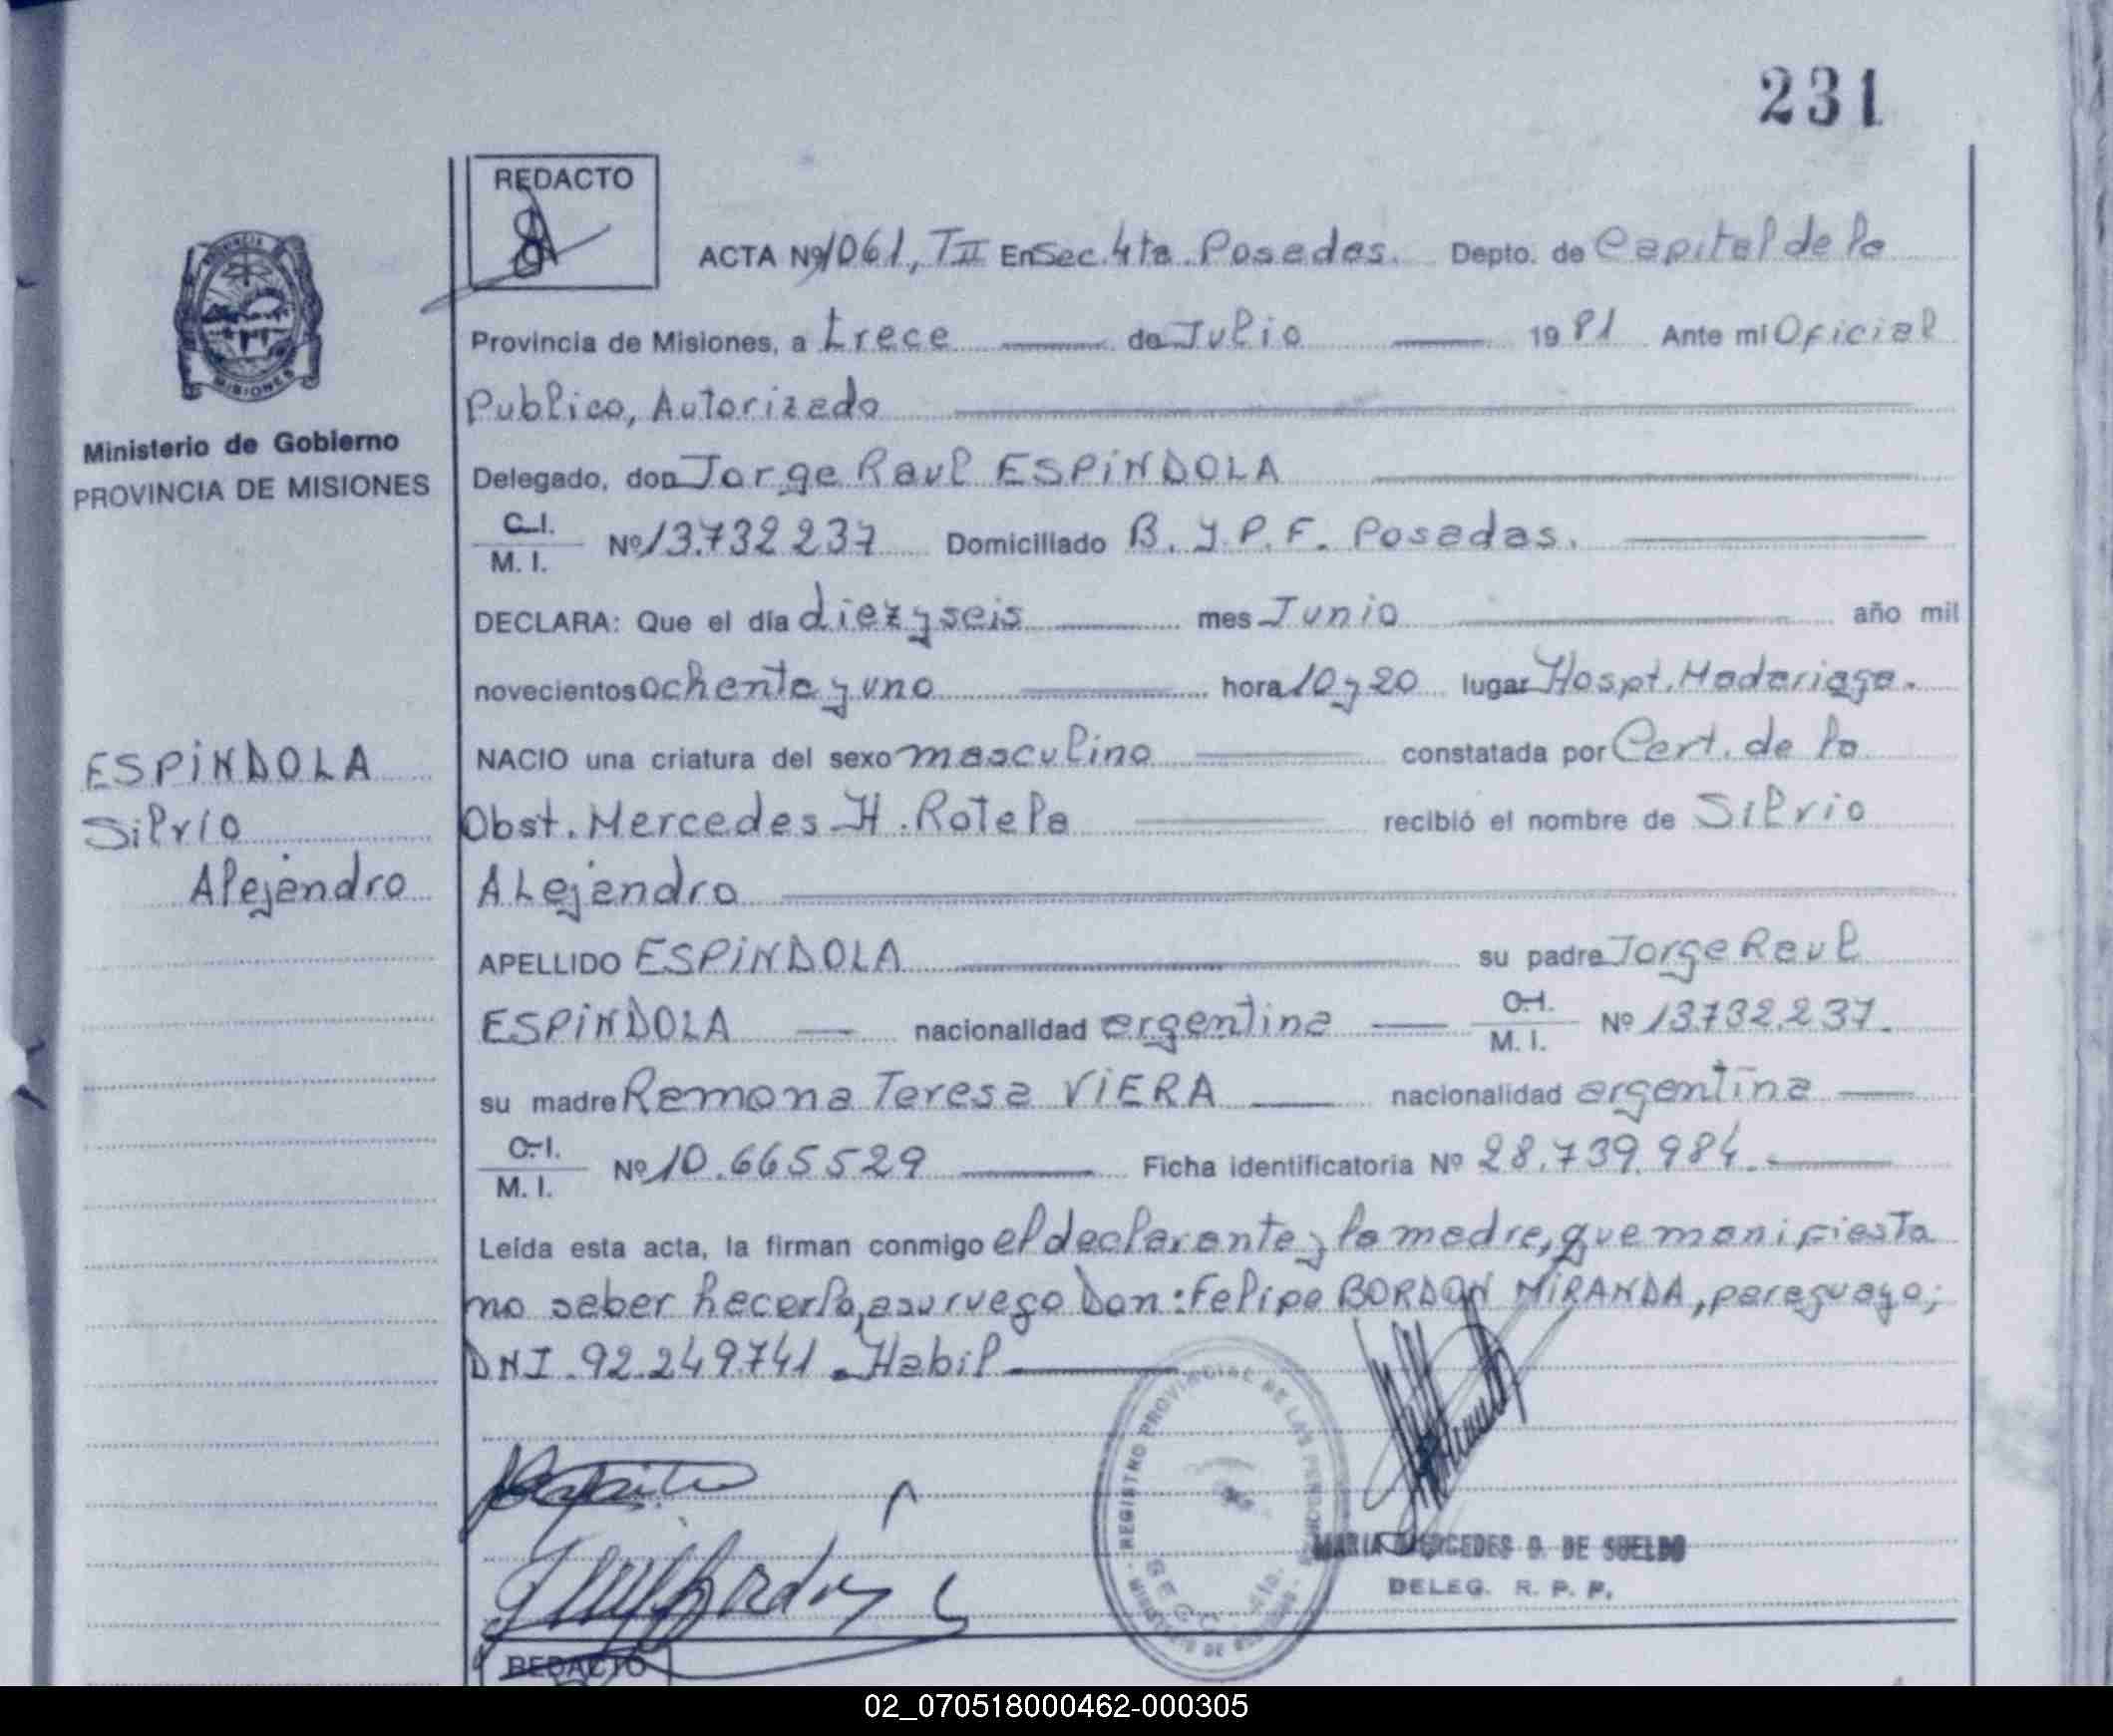 231
REDACTO
ACTA Nº 1061, TII En Sec. 4ta. Posadas. Depto. de Capital de la
Provincia de Misiones, a trece de Julio 1981 Ante mi Oficial
Publico, Autorizado
Delegado, don Jorge Raul ESPINDOLA
C.I.
M. I. Nº 13.732237 Domiciliado B. Y.P.F. Posadas.
DECLARA: Que el día diez y seis mes Junio año mil
novecientos ochenta y uno hora 10 y 20 lugar Hospt. Madariaga.
NACIO una criatura del sexo masculino constatada por Cert. de la
Obst. Mercedes H. Rotela recibió el nombre de Silvio
ALejandro
APELLIDO ESPINDOLA su padre Jorge Raul
ESPINDOLA nacionalidad argentina C.I.
M. I. Nº 13.732.237.
su madre Ramona Teresa VIERA nacionalidad argentina
C.I.
M. I. Nº 10.665529 Ficha identificatoria Nº 28.739.984.
Leída esta acta, la firman conmigo el declarante y la madre, que manifiesta
no saber hacerlo, a su ruego Don: Felipe BORDON MIRANDA, paraguayo;
DNI. 92.249741. Habil
MISIONES
Ministerio de Gobierno
PROVINCIA DE MISIONES
ESPINDOLA
Silvio
Alejandro
REGISTRO PROVINCIAL DE LAS PERSONAS
MARIA MERCEDES G. DE SUELDO
DELEG. R. P. P.
REDACTO
02_070518000462-000305